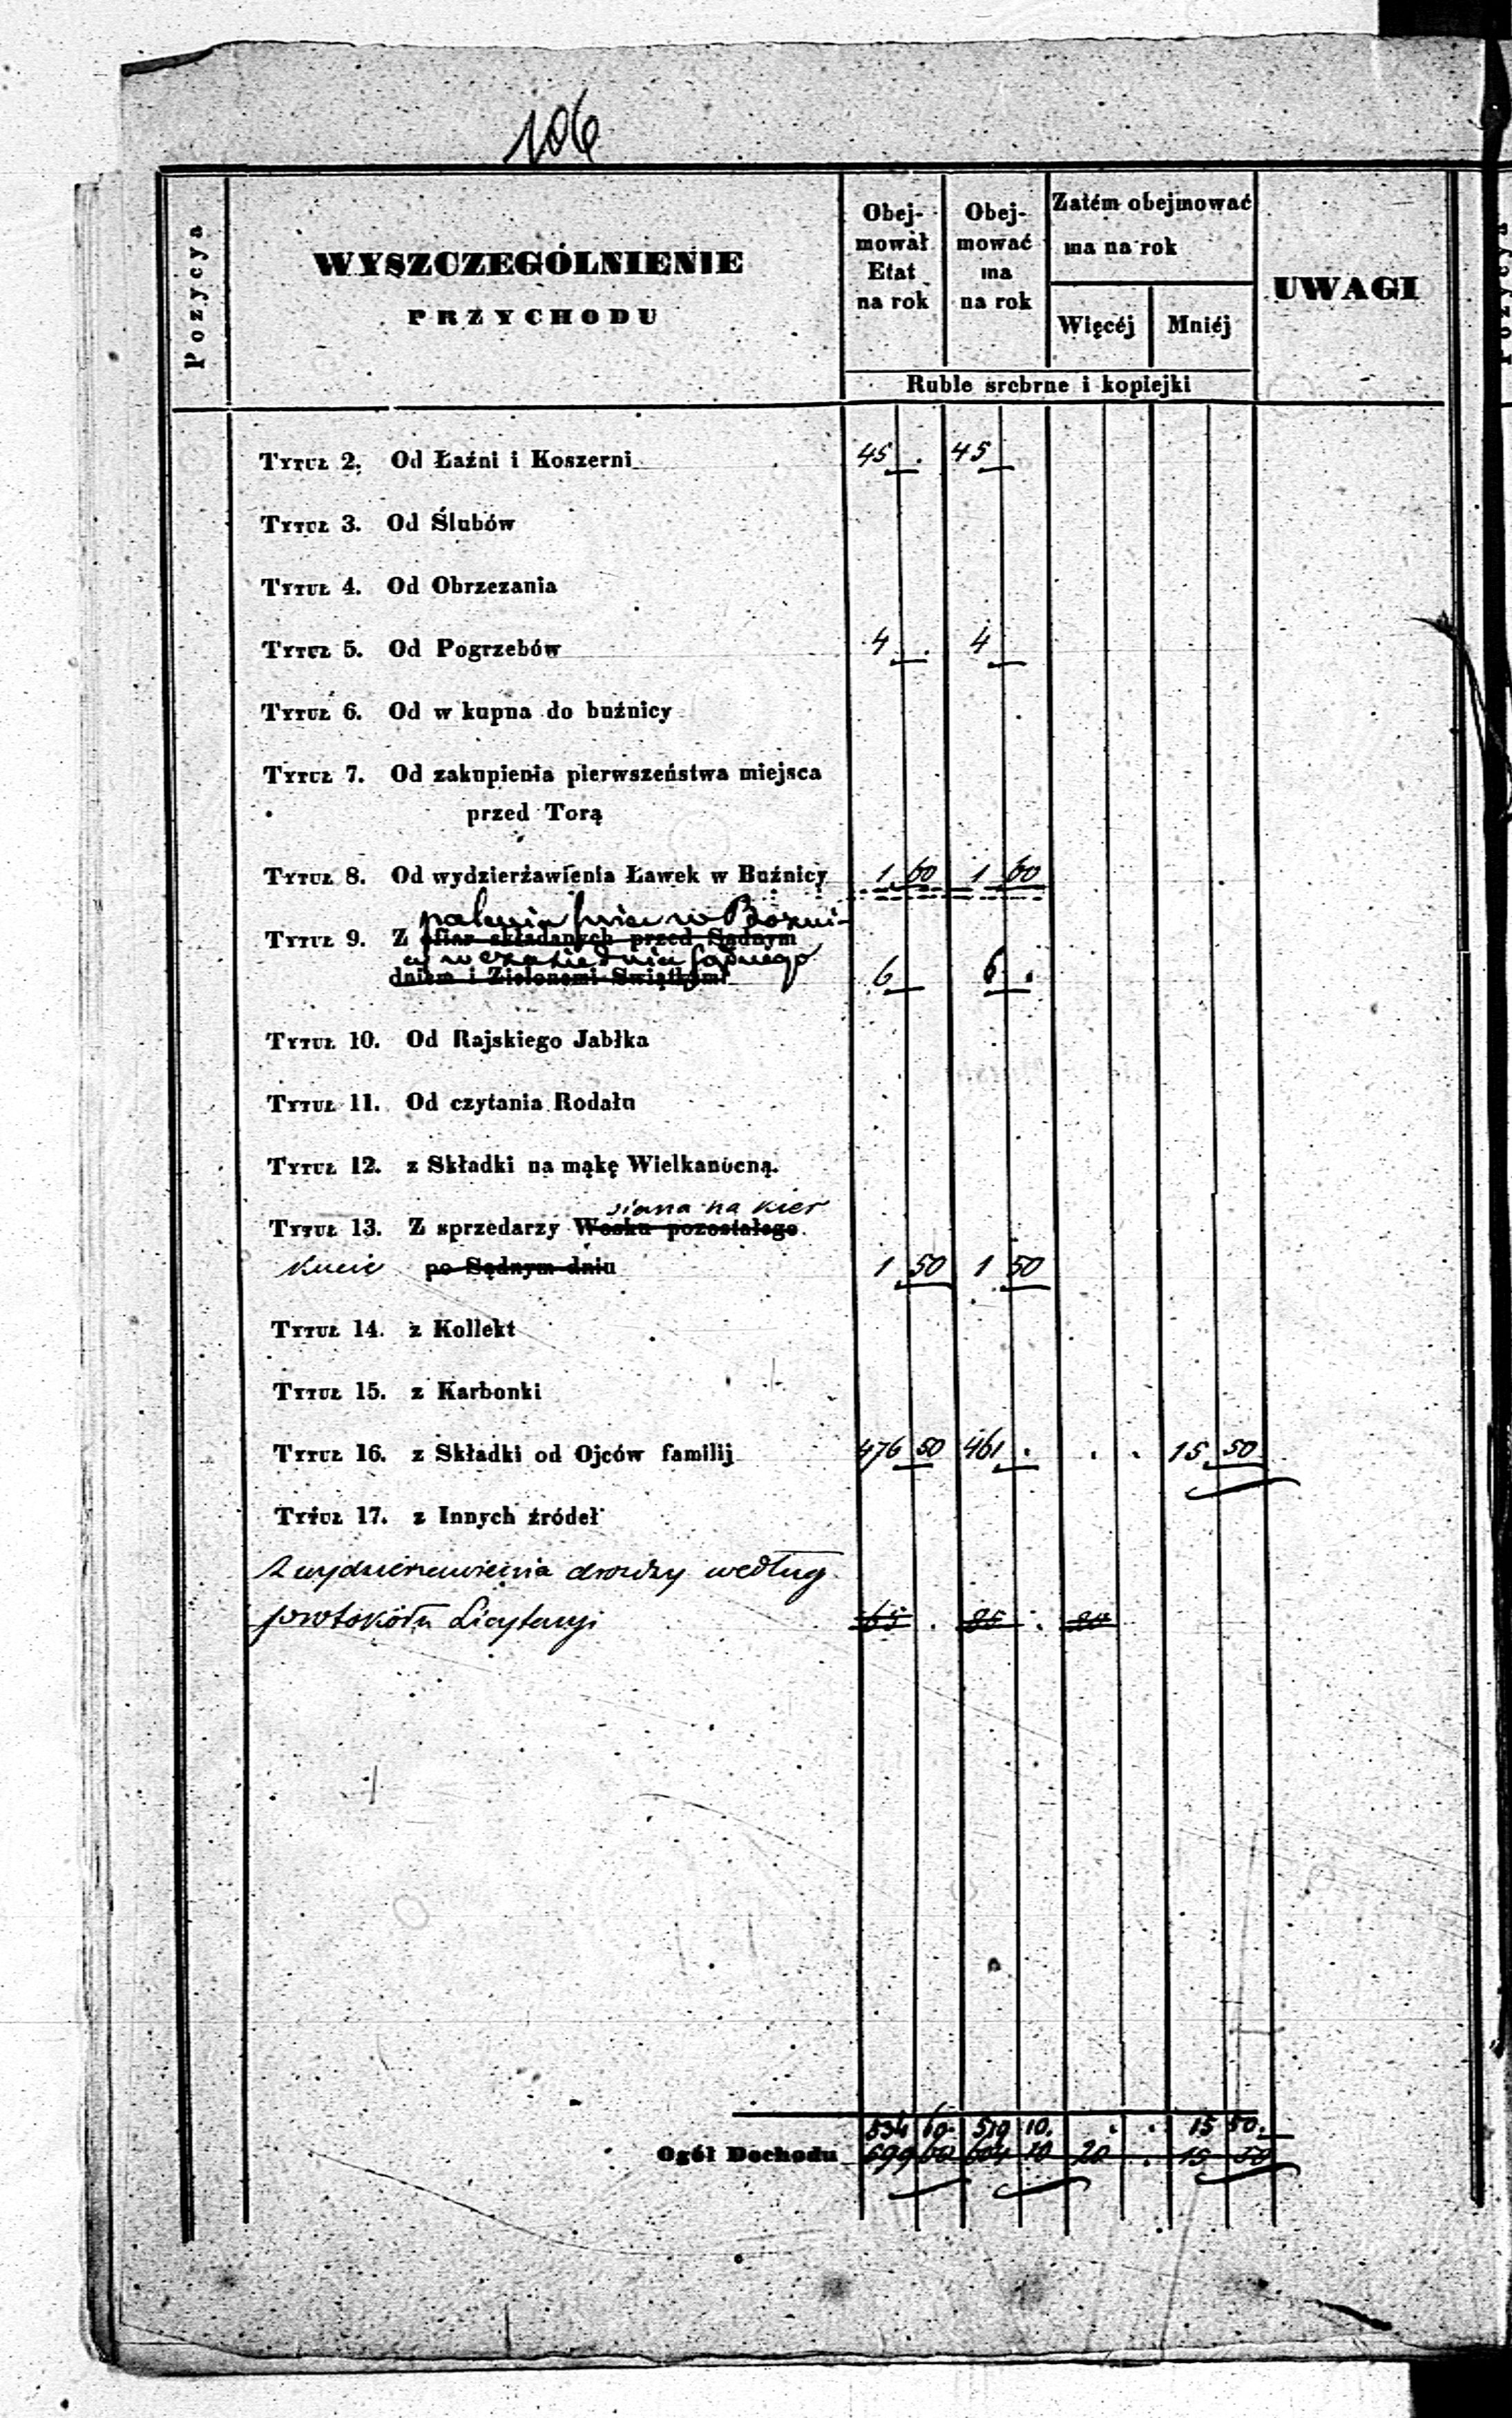 106
Pozycya
WYSZCZEGÓLNIENIE
PRZYCHODU
Obej-
mował
Etat
na rok
Obej-
mować
ma
na rok
Zatém obejmować
ma na rok
Więcéj
Mniéj
UWAGI
Ruble srebrne i kopiejki
Tytuł 2. Od Łaźni i Koszerni 45 . 45
Tytuł 3. Od Ślubów
Tytuł 4. Od Obrzezania
Tytuł 5. Od Pogrzebów 4 . 4
Tytuł 6. Od w kupna do buźnicy
Tytuł 7. Od zakupienia pierwszeństwa miejsca
przed Torą
Tytuł 8. Od wydzierżawienia Ławek w Buźnicy 1 60 1 60
palenia świec w Bożni-
Tytuł 9. Z ofiar składanych przed Sądnym
cy w czasie dnia Sądnego
dniem i Zielonemi Swiątkami 6 6 .
Tytuł 10. Od Rajskiego Jabłka
Tytuł 11. Od czytania Rodału
Tytuł 12. z Składki na mąkę Wielkanocną.
siana na kier
Tytuł 13. Z sprzedarzy Wosku pozostałego
po Sądnym dniu 1 50 1 50
Tytuł 14. z Kollekt
Tytuł 15. z Karbonki
Tytuł 16. z Składki od Ojców familij 476 50 461 . . . 15 50
Tytuł 17. z Innych źródeł
Z wydzierżawienia drożdży według
protokółu Licytacyi 65 . 85 . 20
534 60 519 10 . . 15 50
Ogół Dochodu 699 60 604 10 20 . 15 50